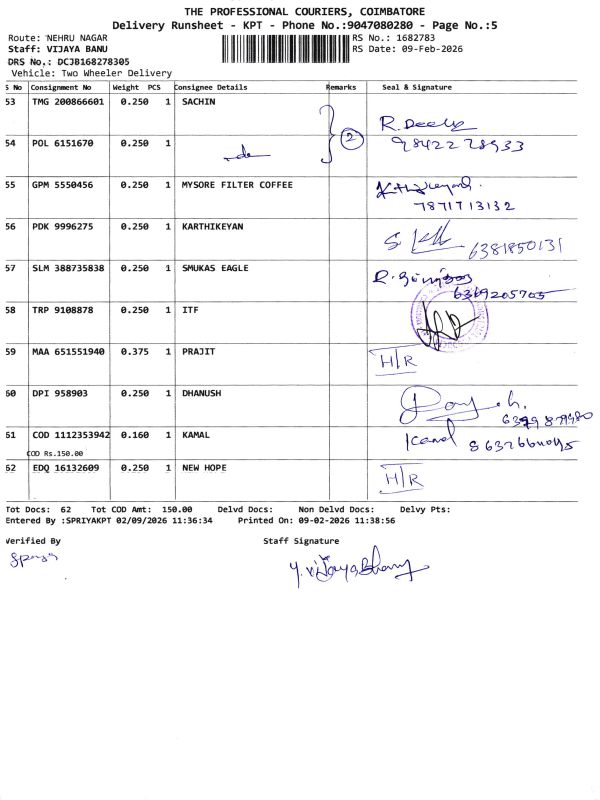 THE PROFESSIONAL COURIERS, COIMBATORE
Delivery Runsheet - KPT - Phone No.:9047080280 - Page No.:5
Route: NEHRU NAGAR RS No.: 1682783
Staff: VIJAYA BANU RS Date: 09-Feb-2026
DRS No.: DCJB168278305
Vehicle: Two Wheeler Delivery
S No Consignment No Weight PCS Consignee Details Remarks Seal & Signature
53 TMG 200866601 0.250 1 SACHIN
54 POL 6151670 0.250 1 2 9842278933
55 GPM 5550456 0.250 1 MYSORE FILTER COFFEE
7871713132
56 PDK 9996275 0.250 1 KARTHIKEYAN
6381850131
57 SLM 388735838 0.250 1 SMUKAS EAGLE
6369205705
58 TRP 9108878 0.250 1 ITF
59 MAA 651551940 0.375 1 PRAJIT H/R
60 DPI 958903 0.250 1 DHANUSH
61 COD 1112353942 0.160 1 KAMAL
COD Rs.150.00
62 EDQ 16132609 0.250 1 NEW HOPE H/R
Tot Docs: 62 Tot COD Amt: 150.00 Delvd Docs: Non Delvd Docs: Delvy Pts:
Entered By :SPRIYAKPT 02/09/2026 11:36:34 Printed On: 09-02-2026 11:38:56
Verified By Staff Signature